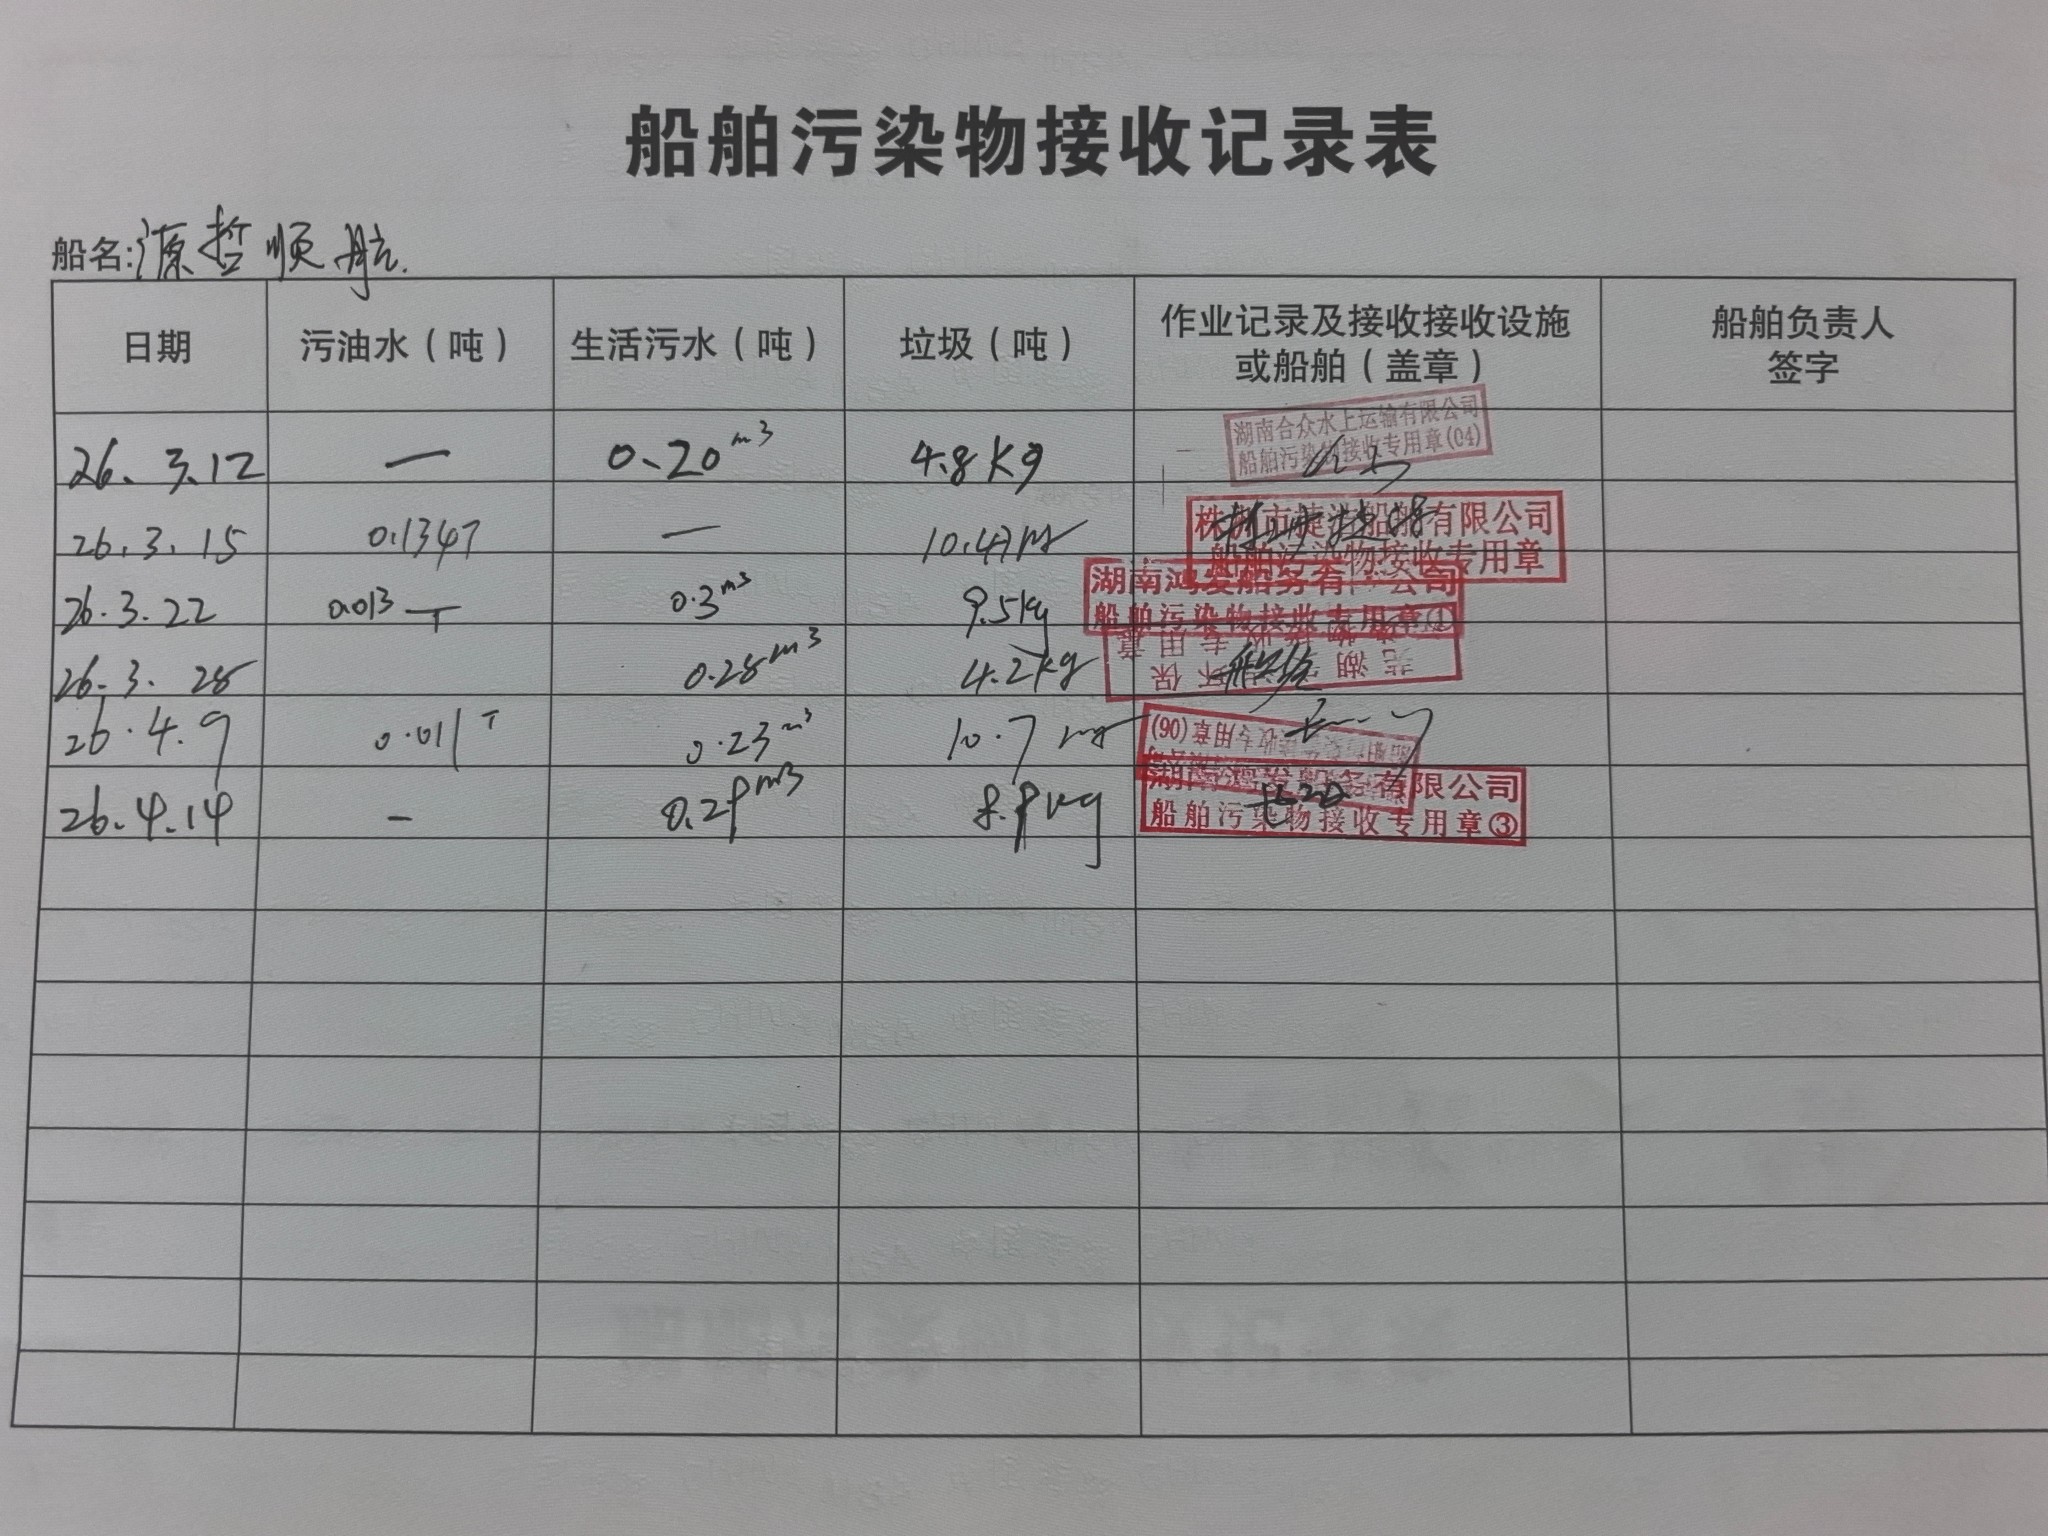 船舶污染物接收记录表
船名:源哲顺航.
日期 污油水（吨） 生活污水（吨） 垃圾（吨） 作业记录及接收接收设施或船舶（盖章） 船舶负责人签字
26.3.12 — 0.20m³ 4.8kg 湖南合众水上运输有限公司 船舶污染物接收专用章(04)
26.3.15 — 10.4 株洲市捷 船舶有限公司 船舶污染物接收专用章
26.3.22 0.013 T 0.3m³ 9.5kg 湖南鸿发船务有限公司 船舶污染物接收专用章①
26.3.28 0.28m³ 4.2kg 芜湖 环保 物接收专用章
26.4.9 0.011T 0.23m³ 10.7 接收专用章(06)
26.4.14 - 0.29m³ 8.9kg 湖南鸿发船务有限公司 船舶污染物接收专用章③